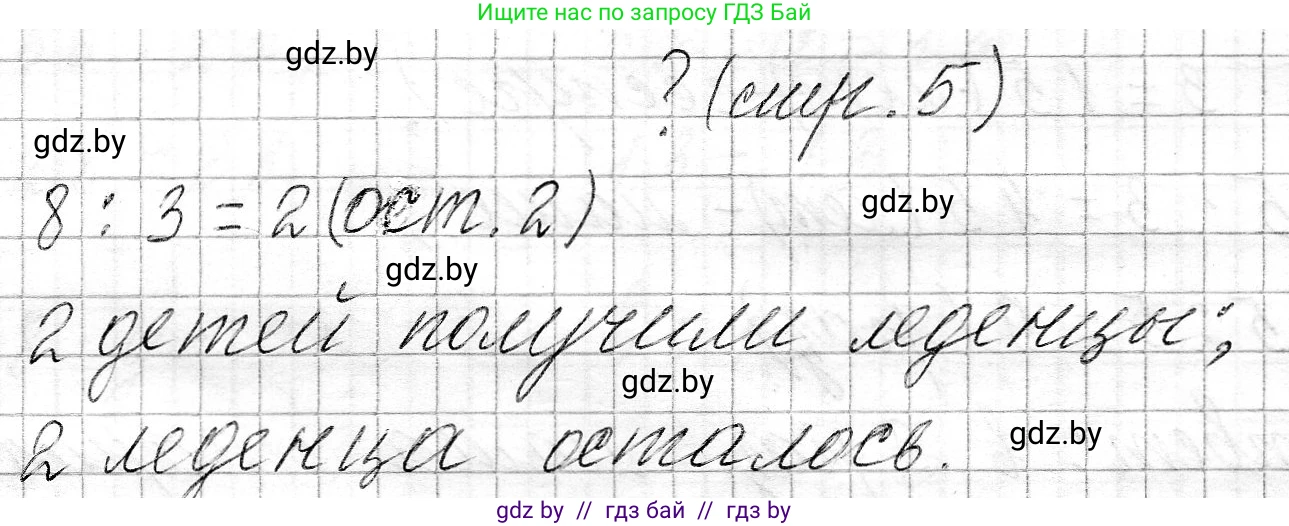 Ищите нас по запросу ГДЗ Бай
gdz.by
? (стр. 5)
gdz.by
8 : 3 = 2 (ост. 2)
gdz.by
gdz.by
2 детей получили леденцы;
gdz.by
2 леденца осталось.
gdz.by
gdz.by // гдз бай // гдз by